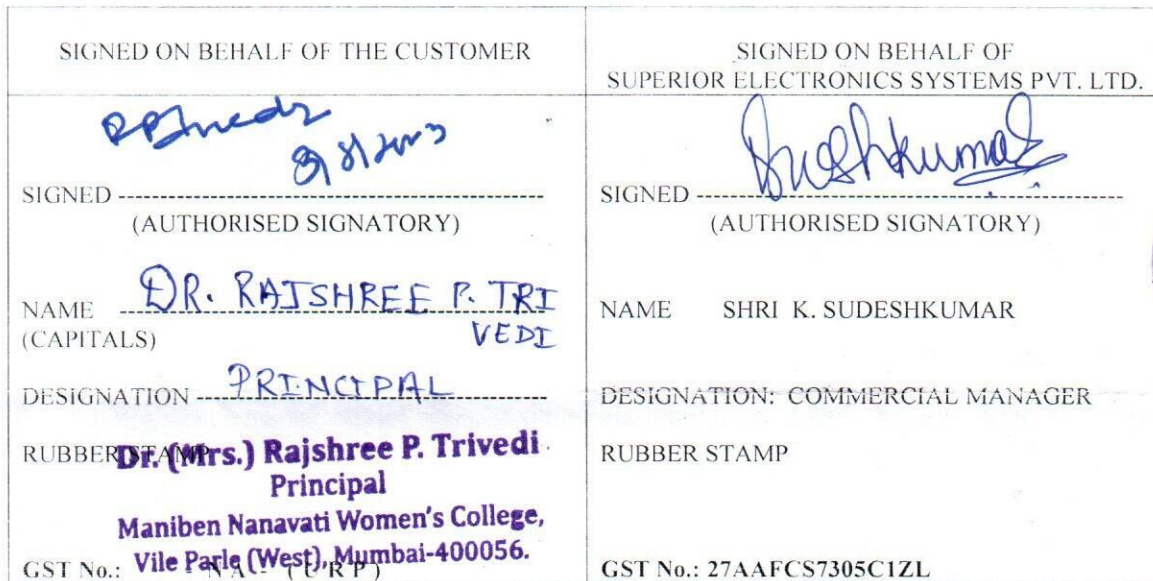 SIGNED ON BEHALF OF THE CUSTOMER
SIGNED
(AUTHORISED SIGNATORY)
NAME DR. RAJSHREE P. TRI
(CAPITALS) VEDI
DESIGNATION PRINCIPAL
RUBBER STAMP
Dr. (Mrs.) Rajshree P. Trivedi
Principal
Maniben Nanavati Women's College,
Vile Parle (West), Mumbai-400056.
GST No.: - NA - (URP)
SIGNED ON BEHALF OF
SUPERIOR ELECTRONICS SYSTEMS PVT. LTD.
Sudeshkumar
SIGNED
(AUTHORISED SIGNATORY)
NAME SHRI K. SUDESHKUMAR
DESIGNATION: COMMERCIAL MANAGER
RUBBER STAMP
GST No.: 27AAFCS7305C1ZL